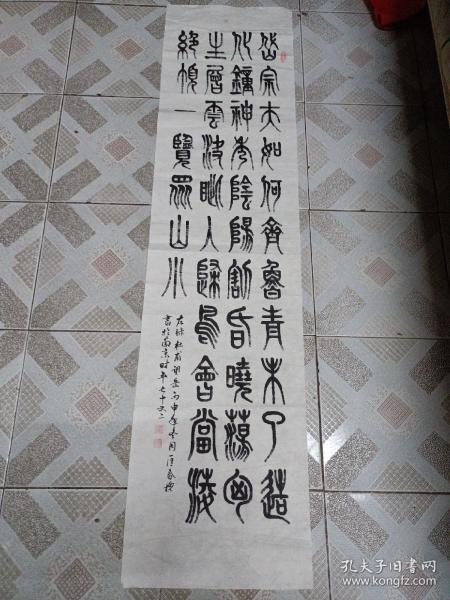 岱宗夫如何齊魯青未了造
化鐘神秀陰陽割昏曉蕩匈
生層雲決眦入歸鳥會當凌
絕頂一覽眾山小
右録杜甫望岳丙申年冬月
書於南京時年七十又二
孔夫子旧书网
www.kongfz.com